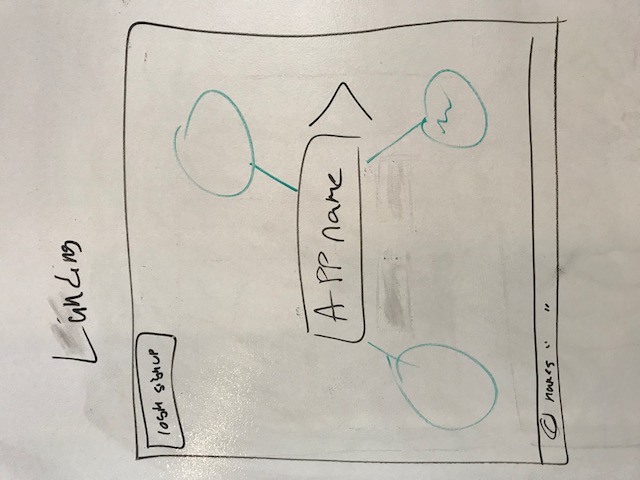 Landing
login signup
App name
© names " "